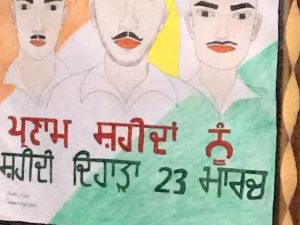 ਪ੍ਰਣਾਮ ਸ਼ਹੀਦਾਂ ਨੂੰ
ਸ਼ਹੀਦੀ ਦਿਹਾੜਾ 23 ਮਾਰਚ